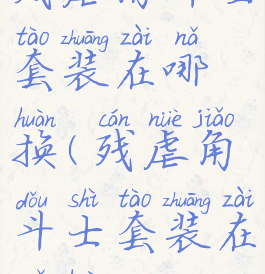 tào zhuāng zài nǎ
套装在哪
huàn cán nüè jiǎo
换(残虐角
dǒu shì tào zhuāng zài
斗士套装在